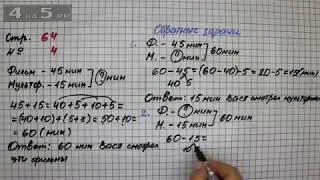 4на5.ру
Стр. 64
№ 4
Фильм - 45 мин
Мультф. - 15 мин
? мин
45+15=40+5+10+5=
=(40+10)+(5+5)=50+10=
=60 (мин)
Ответ: 60 мин Вася смотрел
эти фильмы
Обратные задачи
1. Ф. - 45 мин
М. - ? мин
60 мин
60-45=(60-40)-5=20-5=15(мин)
40 5
Ответ: 15 мин Вася смотрел
2. Ф. - ? мин
М. - 15 мин
60 мин
60-15=
10